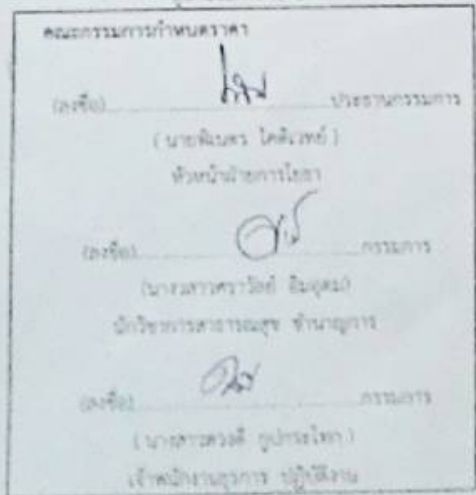 คณะกรรมการกำหนดราคา
(ลงชื่อ) ประธานกรรมการ
(นายพิเนตร โคติเวทย์)
หัวหน้าฝ่ายการโยธา
(ลงชื่อ) กรรมการ
(นางสาวศราวัลย์ อิ่มอุดม)
นักวิชาการสาธารณสุข ชำนาญการ
(ลงชื่อ) กรรมการ
(นางสาวดวงดี
เจ้าพนักงานธุรการ ปฏิบัติงาน